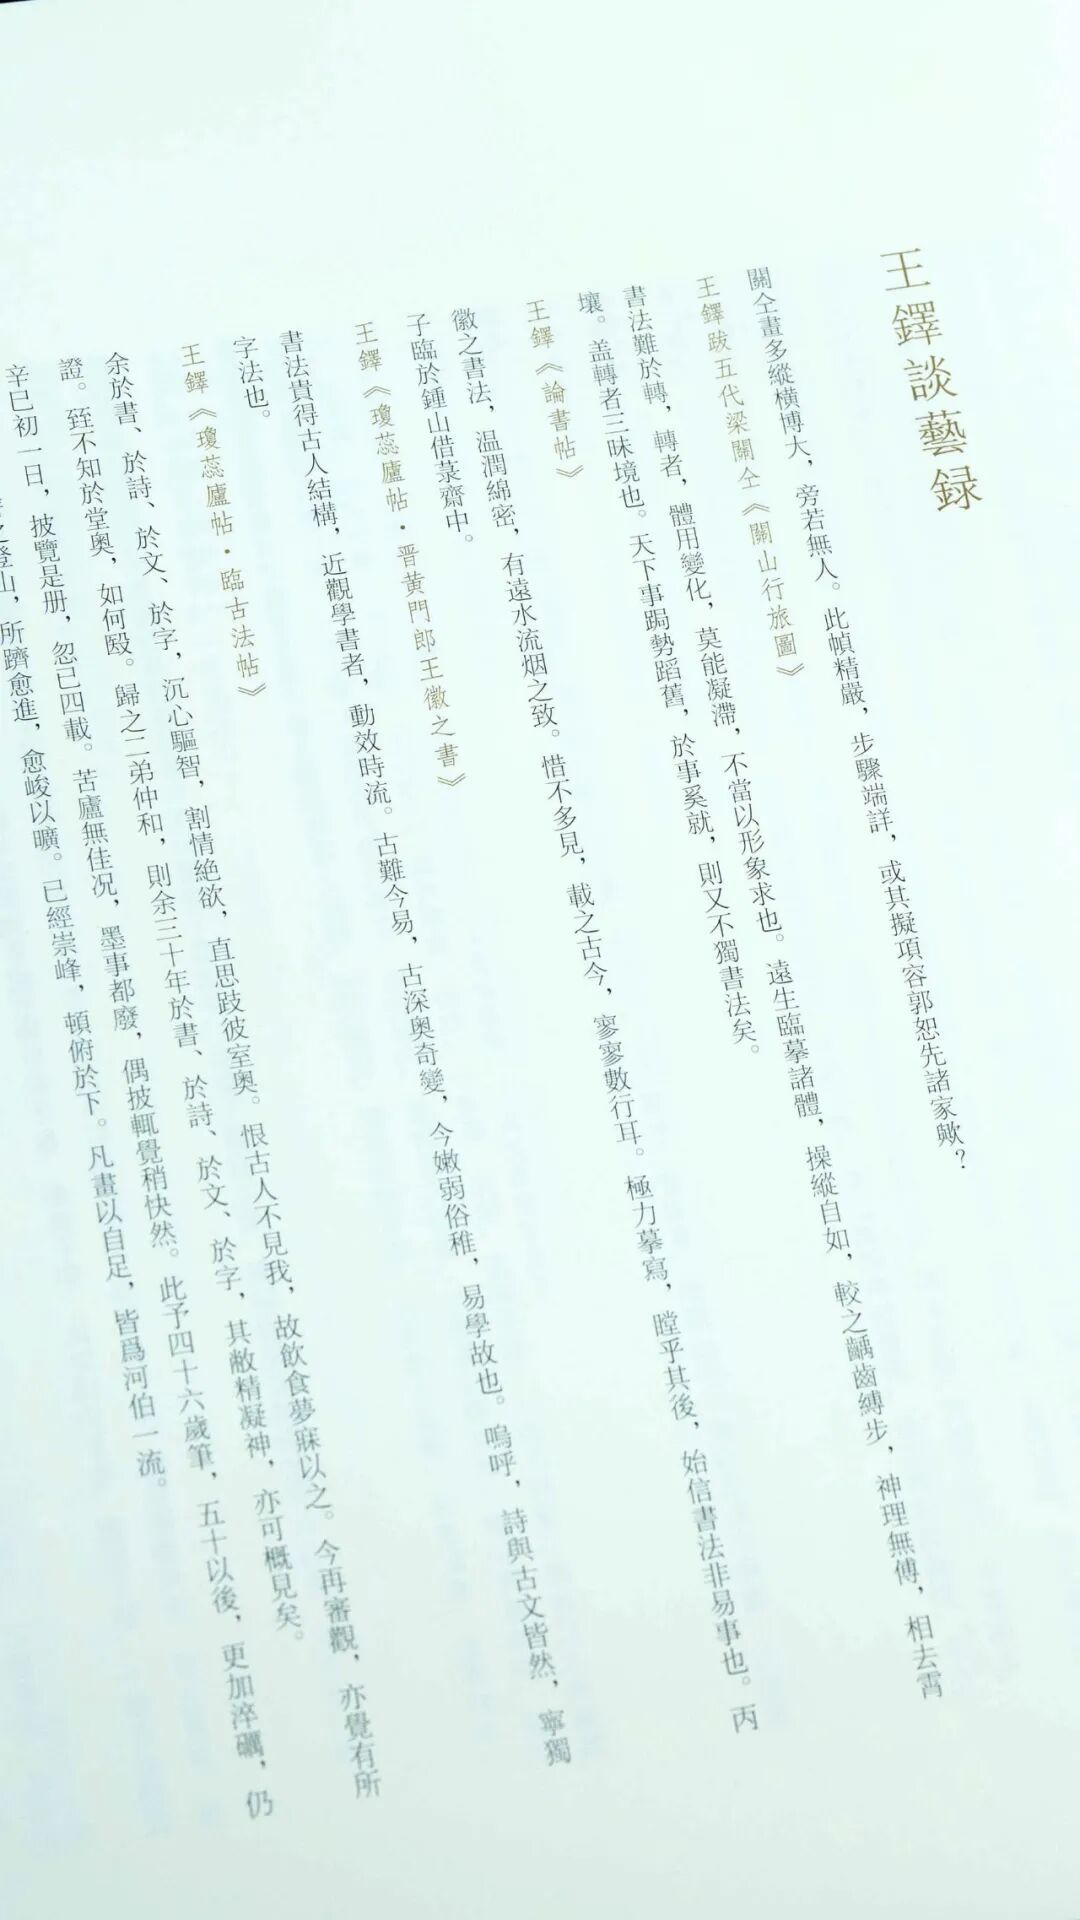 王鐸談藝録
關仝畫多縱横博大，旁若無人。此幀精嚴，步驟端詳，或其擬項容郭恕先諸家歟？
王鐸跋五代梁關仝《關山行旅圖》
書法難於轉，轉者，體用變化，莫能凝滯，不當以形象求也。遠生臨摹諸體，操縱自如，較之齲齒縛步，神理無傅，相去霄
壤。盖轉者三昧境也。天下事跼勢蹈舊，於事奚就，則又不獨書法矣。
王鐸《論書帖》
徽之書法，温潤綿密，有遠水流烟之致。惜不多見，載之古今，寥寥數行耳。極力摹寫，瞠乎其後，始信書法非易事也。丙
子臨於鍾山借菉齋中。
王鐸《瓊蕊廬帖·晋黄門郎王徽之書》
書法貴得古人結構，近觀學書者，動效時流。古難今易，古深奥奇變，今嫩弱俗稚，易學故也。嗚呼，詩與古文皆然，寧獨
字法也。
王鐸《瓊蕊廬帖·臨古法帖》
余於書、於詩、於文、於字，沉心驅智，割情絶欲，直思跂彼室奥。恨古人不見我，故飲食夢寐以之。今再審觀，亦覺有所
證。臸不知於堂奥，如何殹。歸之二弟仲和，則余三十年於書、於詩、於文、於字，其敝精凝神，亦可概見矣。
辛巳初一日，披覽是册，忽已四載。苦廬無佳况，墨事都廢，偶披輒覺稍快然。此予四十六歲筆，五十以後，更加淬礪，仍
之登山，所躋愈進，愈峻以曠。已經崇峰，頓俯於下。凡畫以自足，皆爲河伯一流。